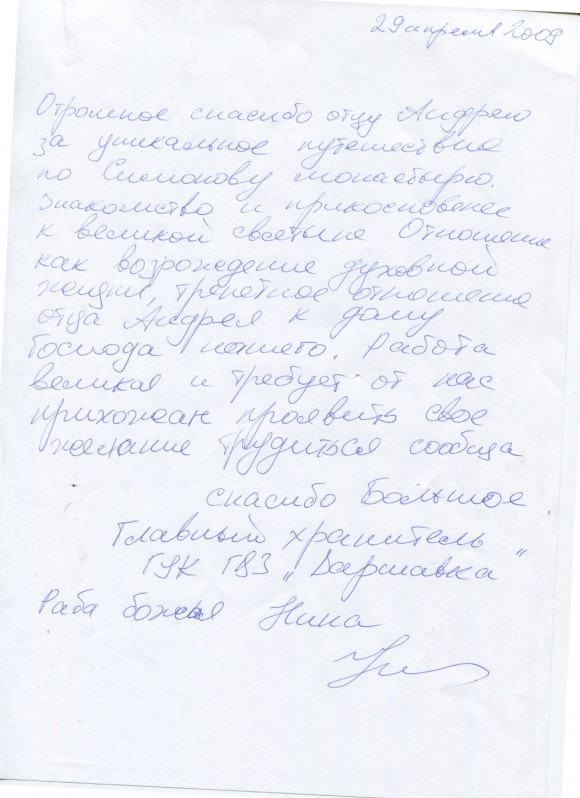 29 апреля 2009
Огромное спасибо отцу Андрею
за уникальное путешествие
по Симонову монастырю.
Знакомство и прикосновение
к великой святыне Отношение
как возрождение духовной
жизни, трепетное отношение
отца Андрея к дому
Господа нашего. Работа
великая и требует от нас
прихожан проявить свое
желание трудиться сообща
спасибо Большое
Главный хранитель
ГУК ГВЗ „
Раба божья Нина